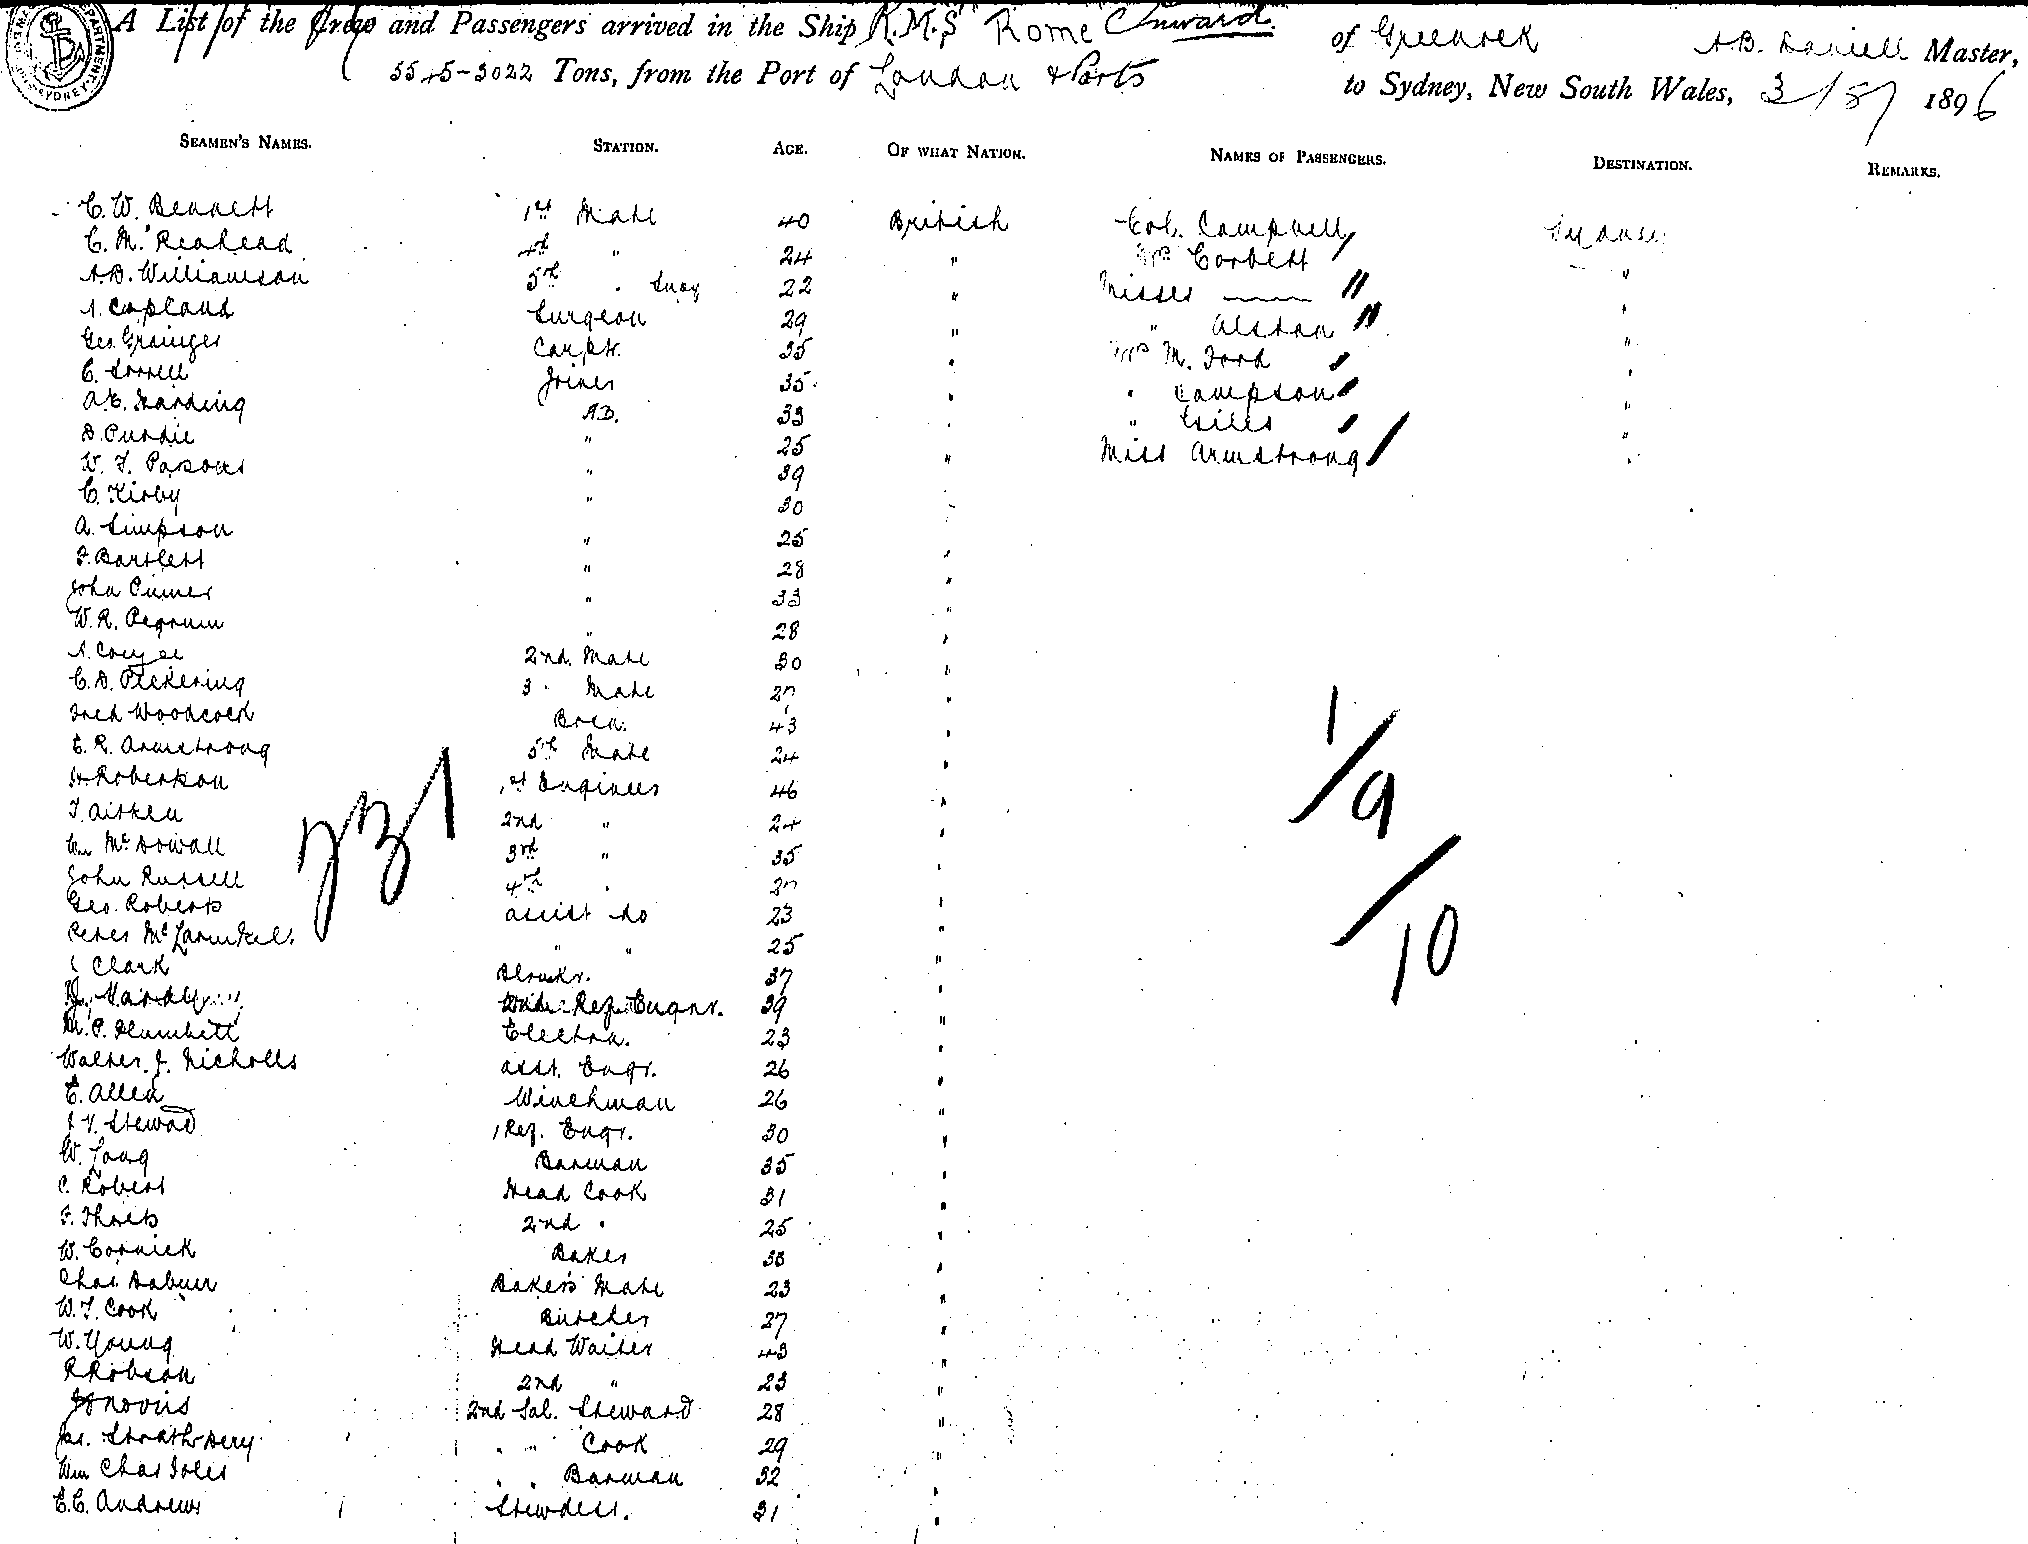 A List of the Crew and Passengers arrived in the Ship R.M.S "Rome" Inward. of Greenock A.B. Daniell Master,
5545-3022 Tons, from the Port of London & Ports to Sydney, New South Wales, 3/8/1896
SEAMEN'S NAMES. STATION. AGE. OF WHAT NATION. NAMES OF PASSENGERS. DESTINATION. REMARKS.
C. W. Bennett 1st Mate 40 British Col. Campbell Sydney
C. M. Reahead 4th " 24 " Mrs Corbett "
A.B. Williamson 5th " 22 " Misses —— "
A. Copland Surgeon 29 " " Alston "
Geo. Grainger Carptr. 35 " Mrs M. Ford "
C. Sorrell Joiner 35 " " Sampson "
A.E. Harding A.B. 33 " " Giles "
D. Purdie " 25 " Miss Armstrong "
W. F. Parsons " 39 "
C. Kirby " 30 "
A. Simpson " 25 "
F. Bartlett " 28 "
John " 33 "
W. R. Pegrum " 28 "
2nd. Mate 30 "
C. D. Pickering 3 " Mate 27 "
Fred Woodcock 43 "
E. R. Armstrong 5th Mate 24 "
H. Robertson 1st Engineer 46 "
T. Aitken 2nd " 24 "
McDowall 3rd " 35 "
John Russell 4th " 27 "
Geo. Roberts Assist do 23 "
Peter " " 25 "
Clark 37 "
Ref. Engnr. 39 "
M. P. Plunkett Electrn. 23 "
Walter J. Nicholls Asst. Engr. 26 "
E. Allen Winchman 26 "
Steward 1 Ref. Engr. 30 "
W. Long Barman 35 "
C. Robert Head Cook 31 "
F. 2nd " 25 "
W. Cornick Baker 33 "
Chas. Baker's Mate 23 "
W. T. Cook Butcher 27 "
W. Young Head Waiter 43 "
R Robson 2nd " 23 "
2nd Sal. Steward 28 "
" " Cook 29 "
Wm Chas " " Barman 32 "
E.C. Andrews Stewdess. 31 "
731
1/9/10